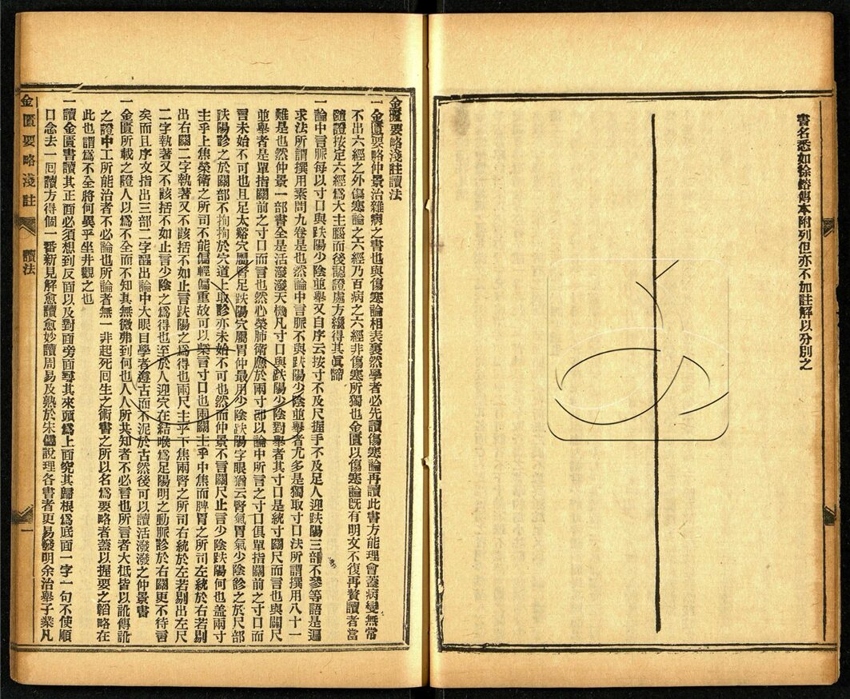 書名悉如徐鎔傳本附列但亦不加註解以分別之
金匱要略淺註讀法
一金匱要略仲景治雜病之書也與傷寒論相表裏然學者必先讀傷寒論再讀此書方能理會蓋病變無常
不出六經之外傷寒論之六經乃百病之六經非傷寒所獨也金匱以傷寒論既有明文不復再贅讀者當
隨證按定六經為大主腦而後認證處方纔得其眞諦
一論中言脈每以寸口與趺陽少陰並舉又自序云按寸不及尺握手不及足人迎趺陽三部不參等語是遍
求法所謂撰用素問九卷是也然論中言脈不與趺陽少陰並舉者尤多是獨取寸口法所謂撰用八十一
難是也然仲景一部書全是活潑潑天機凡寸口與趺陽少陰對舉者其寸口是統寸關尺而言也與關尺
並舉者是單指關前之寸口而言也然心榮肺衛應於兩寸即以論中所言之寸口俱單指關前之寸口而
言未始不可也且足太谿穴屬腎足趺陽穴屬胃仲景用少陰趺陽字眼猶云腎氣胃氣少陰診之於尺部
趺陽診之於關部不拘拘於穴道上取診亦未始不可也然而仲景不言關尺止言少陰趺陽何也蓋兩寸
主乎上焦榮衛之所司不能偏輕偏重故可以槩言寸口也兩關主乎中焦而脾胃之所司左統於右若剔
出右關二字執著又不該括不如止言趺陽之為得也兩尺主乎下焦兩腎之所司右統於左若剔出左尺
二字執著又不該括不如止言少陰之為得也至於人迎穴在結喉為足陽明之動脈診於右關更不待言
矣而且序文指出三部二字醒出論中大眼目學者遵古而不泥於古然後可以讀活潑潑之仲景書
一金匱所載之證人以為不全而不知其無微弗到何也人人所共知者不必言也所言者大抵皆以訛傳訛
之證中工所能治者不必論也所論者無一非起死回生之術書之所以名為要略者蓋以握要之韜略在
此也謂為不全將何異乎坐井觀之也
一讀金匱書讀其正面必須想到反面以及對面旁面尋其來頭為上面究其歸根為底面一字一句不使順
口念去一回讀方得個一番新見解愈讀愈妙讀周易及熟於宋儒說理各書者更易發明余治舉子業凡
金匱要略淺註
讀法
一